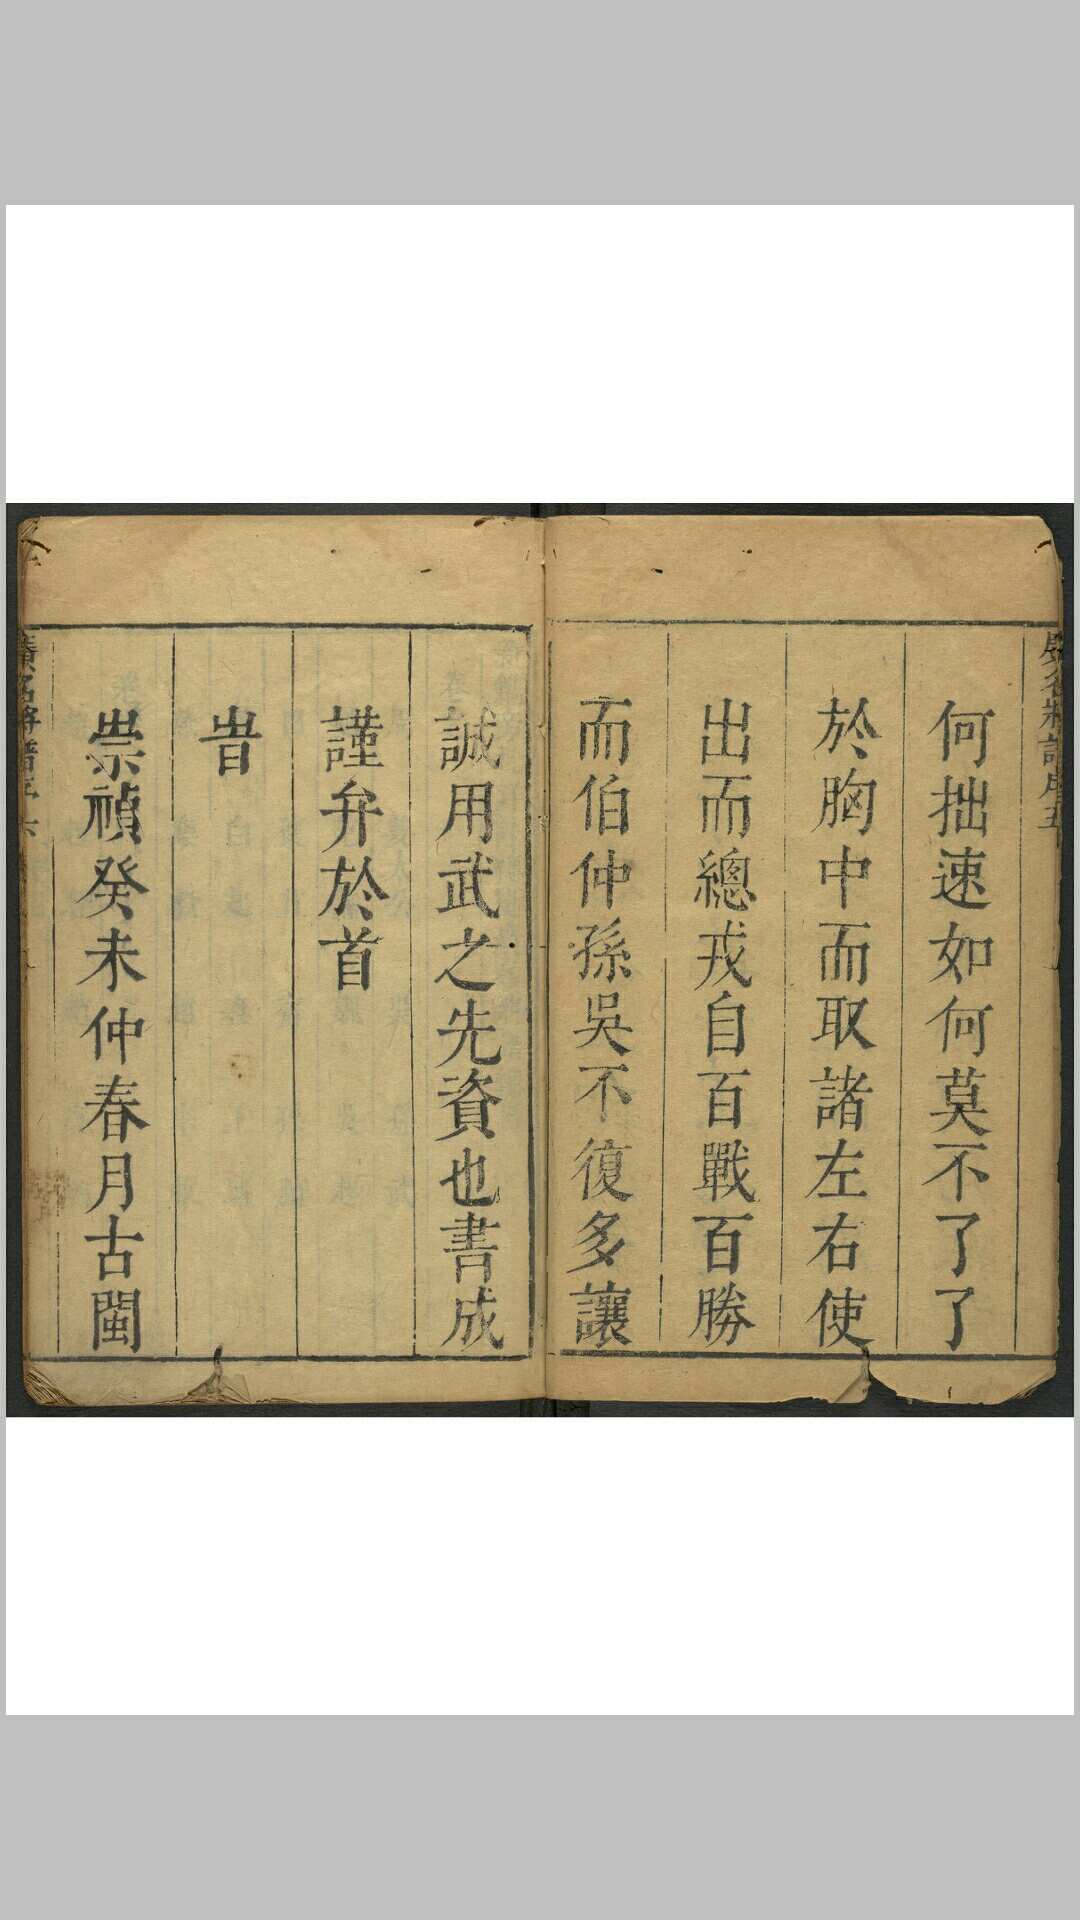 何拙速如何莫不了了
於胸中而取諸左右使
出而總戎自百戰百勝
而伯仲孫吳不復多讓
誠用武之先資也書成
謹弁於首
旹
崇禎癸未仲春月古閩